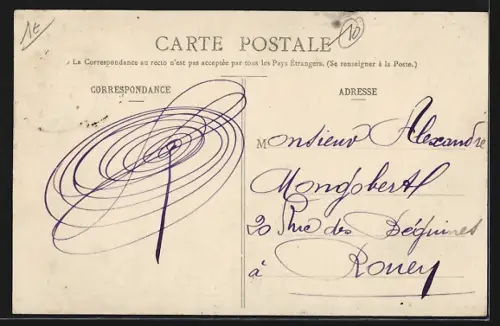 1€
10
CARTE POSTALE
La Correspondance au recto n'est pas acceptée par tous les Pays Étrangers. (Se renseigner à la Poste.)
CORRESPONDANCE
ADRESSE
Monsieur Alexandre
Mongobert
20 Rue des Béguines
à Rouen